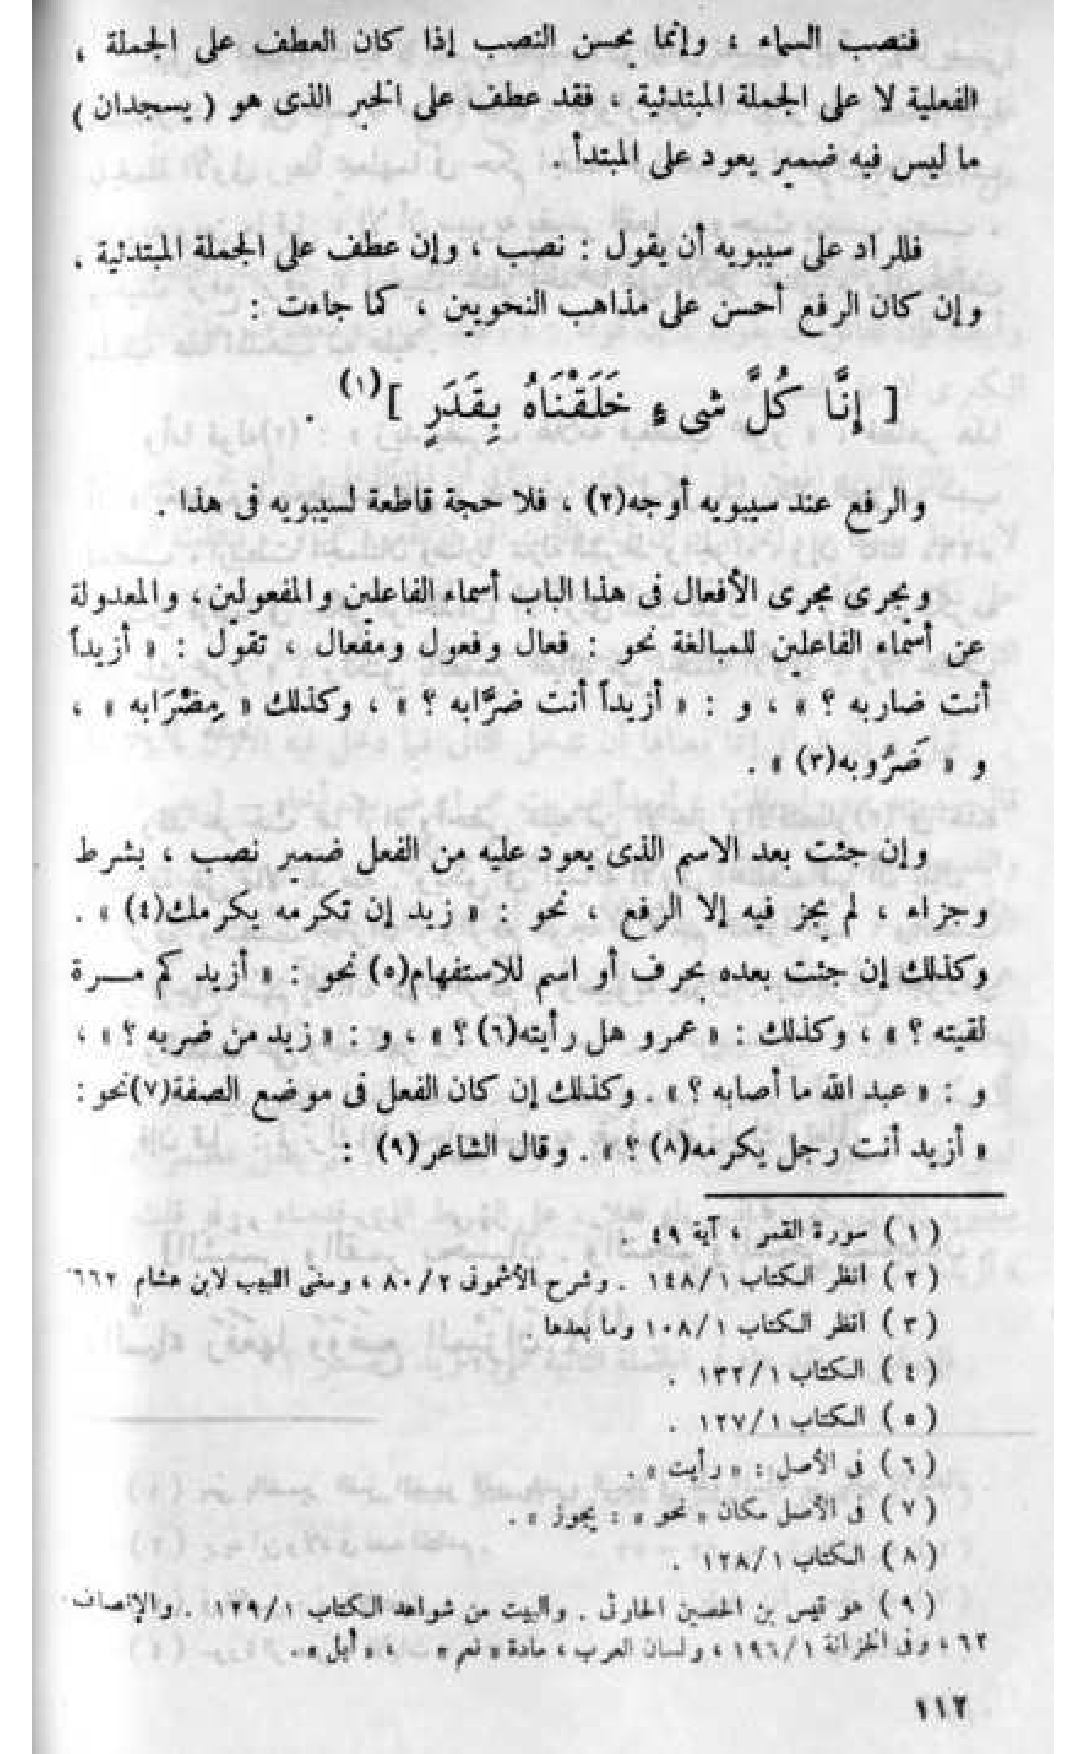 فنصب السماء ، وإنما يحسن النصب إذا كان العطف على الجملة ،
الفعلية لا على الجملة المبتدئية ، فقد عطف على الخبر الذى هو ( يسجدان )
ما ليس فيه ضمير يعود على المبتدأ .
فللراد على سيبويه أن يقول : نصب ، وإن عطف على الجملة المبتدئية .
وإن كان الرفع أحسن على مذاهب النحويين ، كما جاءت :
[ إِنَّا كُلَّ شىءٍ خَلَقْنَاهُ بِقَدَرٍ ](١) .
والرفع عند سيبويه أوجه(٢) ، فلا حجة قاطعة لسيبويه فى هذا .
ويجرى مجرى الأفعال فى هذا الباب أسماء الفاعلين والمفعولين ، والمعدولة
عن أسماء الفاعلين للمبالغة نحو : فعال وفعول ومفعال ، تقول : « أزيداً
أنت ضاربه ؟ » ، و : « أزيداً أنت ضرَّابه ؟ » ، وكذلك « مِضْرَابه » ،
و « ضَرُوبه(٣) » .
وإن جئت بعد الاسم الذى يعود عليه من الفعل ضمير نصب ، بشرط
وجزاء ، لم يجز فيه إلا الرفع ، نحو : « زيد إن تكرمه يكرمك(٤) » .
وكذلك إن جئت بعده بحرف أو اسم للاستفهام(٥) نحو : « أزيد كم مـــرة
لقيته ؟ » ، وكذلك : « عمرو هل رأيته(٦) ؟ » ، و : « زيد من ضربه ؟ » ،
و : « عبد الله ما أصابه ؟ » . وكذلك إن كان الفعل فى موضع الصفة(٧) نحو :
« أزيد أنت رجل يكرمه(٨) ؟ » . وقال الشاعر(٩) :
( ١ ) سورة القمر ، آية ٤٩ .
( ٢ ) انظر الكتاب ١٤٨/١ . وشرح الأشمونى ٨٠/٢ ، ومغنى اللبيب لابن هشام ٦٦٢
( ٣ ) انظر الكتاب ١٠٨/١ وما بعدها .
( ٤ ) الكتاب ١٣٢/١ .
( ٥ ) الكتاب ١٢٧/١ .
( ٦ ) فى الأصل : « رأيت » .
( ٧ ) فى الأصل مكان « نحو » : يجوز » .
( ٨ ) الكتاب ١٢٨/١ .
( ٩ ) هو قيس بن الحصين الحارثى . والبيت من شواهد الكتاب ١٢٩/١ . والإنصاف
٦٢ ، وفى الخزانة ١٩٦/١ ، ولسان العرب ، مادة « نعم » ، « أبل » .
١١٢